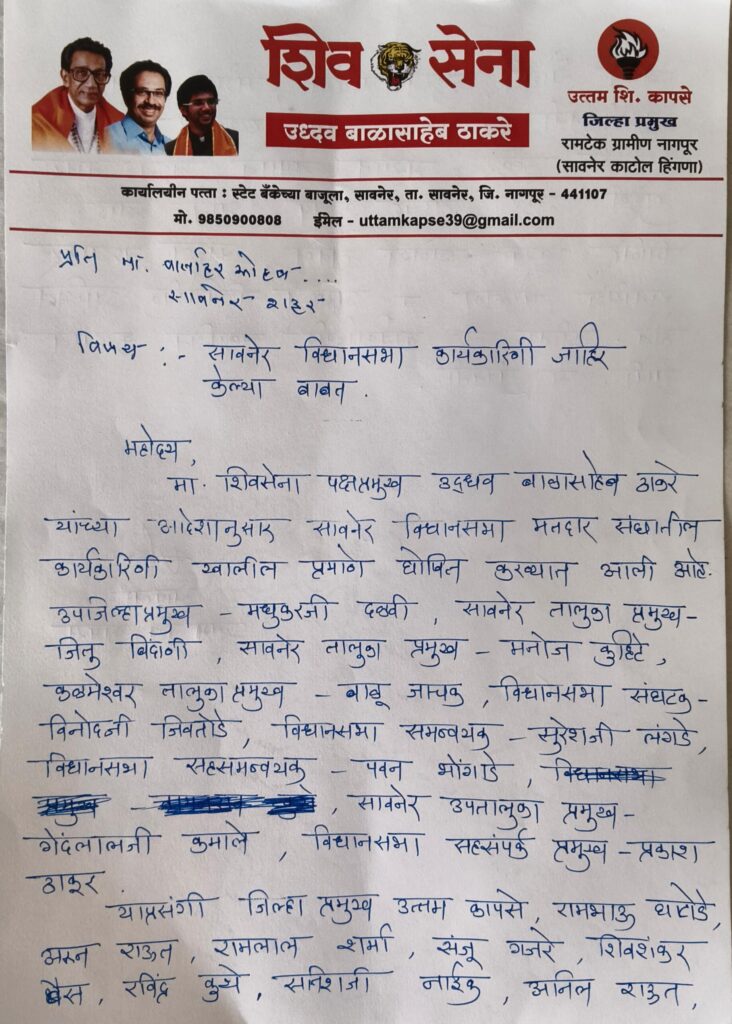 शिव सेना
उध्दव बाळासाहेब ठाकरे
उत्तम शि. कापसे
जिल्हा प्रमुख
रामटेक ग्रामीण नागपूर
(सावनेर काटोल हिंगणा)
कार्यालयीन पत्ता : स्टेट बँकेच्या बाजूला, सावनेर, ता. सावनेर, जि. नागपूर - 441107
मो. 9850900808 ईमेल - uttamkapse39@gmail.com
प्रति मा.
सावनेर शहर
विषय :- सावनेर विधानसभा कार्यकारिणी जाहिर
केल्या बाबत.
महोदय,
मा. शिवसेना पक्षप्रमुख उद्धव बाळासाहेब ठाकरे
यांच्या आदेशानुसार सावनेर विधानसभा मतदार संघातील
कार्यकारिणी खालील प्रमाणे घोषित करण्यात आली आहे.
उपजिल्हाप्रमुख - मधुकरजी दळवी, सावनेर तालुका प्रमुख-
जितू बिंदानी, सावनेर तालुका प्रमुख - मनोज कुहिटे,
कळमेश्वर तालुका प्रमुख - बाळू जाचक, विधानसभा संघटक-
विनोदजी जिवतोडे, विधानसभा समन्वयक - सुरेशजी लंगडे,
विधानसभा सहसमन्वयक - पवन भोंगाडे,
, सावनेर उपतालुका प्रमुख-
गेंदलालजी कमाले, विधानसभा सहसंपर्क प्रमुख - प्रकाश
ठाकुर
याप्रसंगी जिल्हा प्रमुख उत्तम कापसे, रामभाऊ घाटोडे,
अरुन राऊत, रामलाल शर्मा, संजू गजरे, शिवशंकर
बैस, रविंद्र कुथे, नाईक, अनिल राऊत,